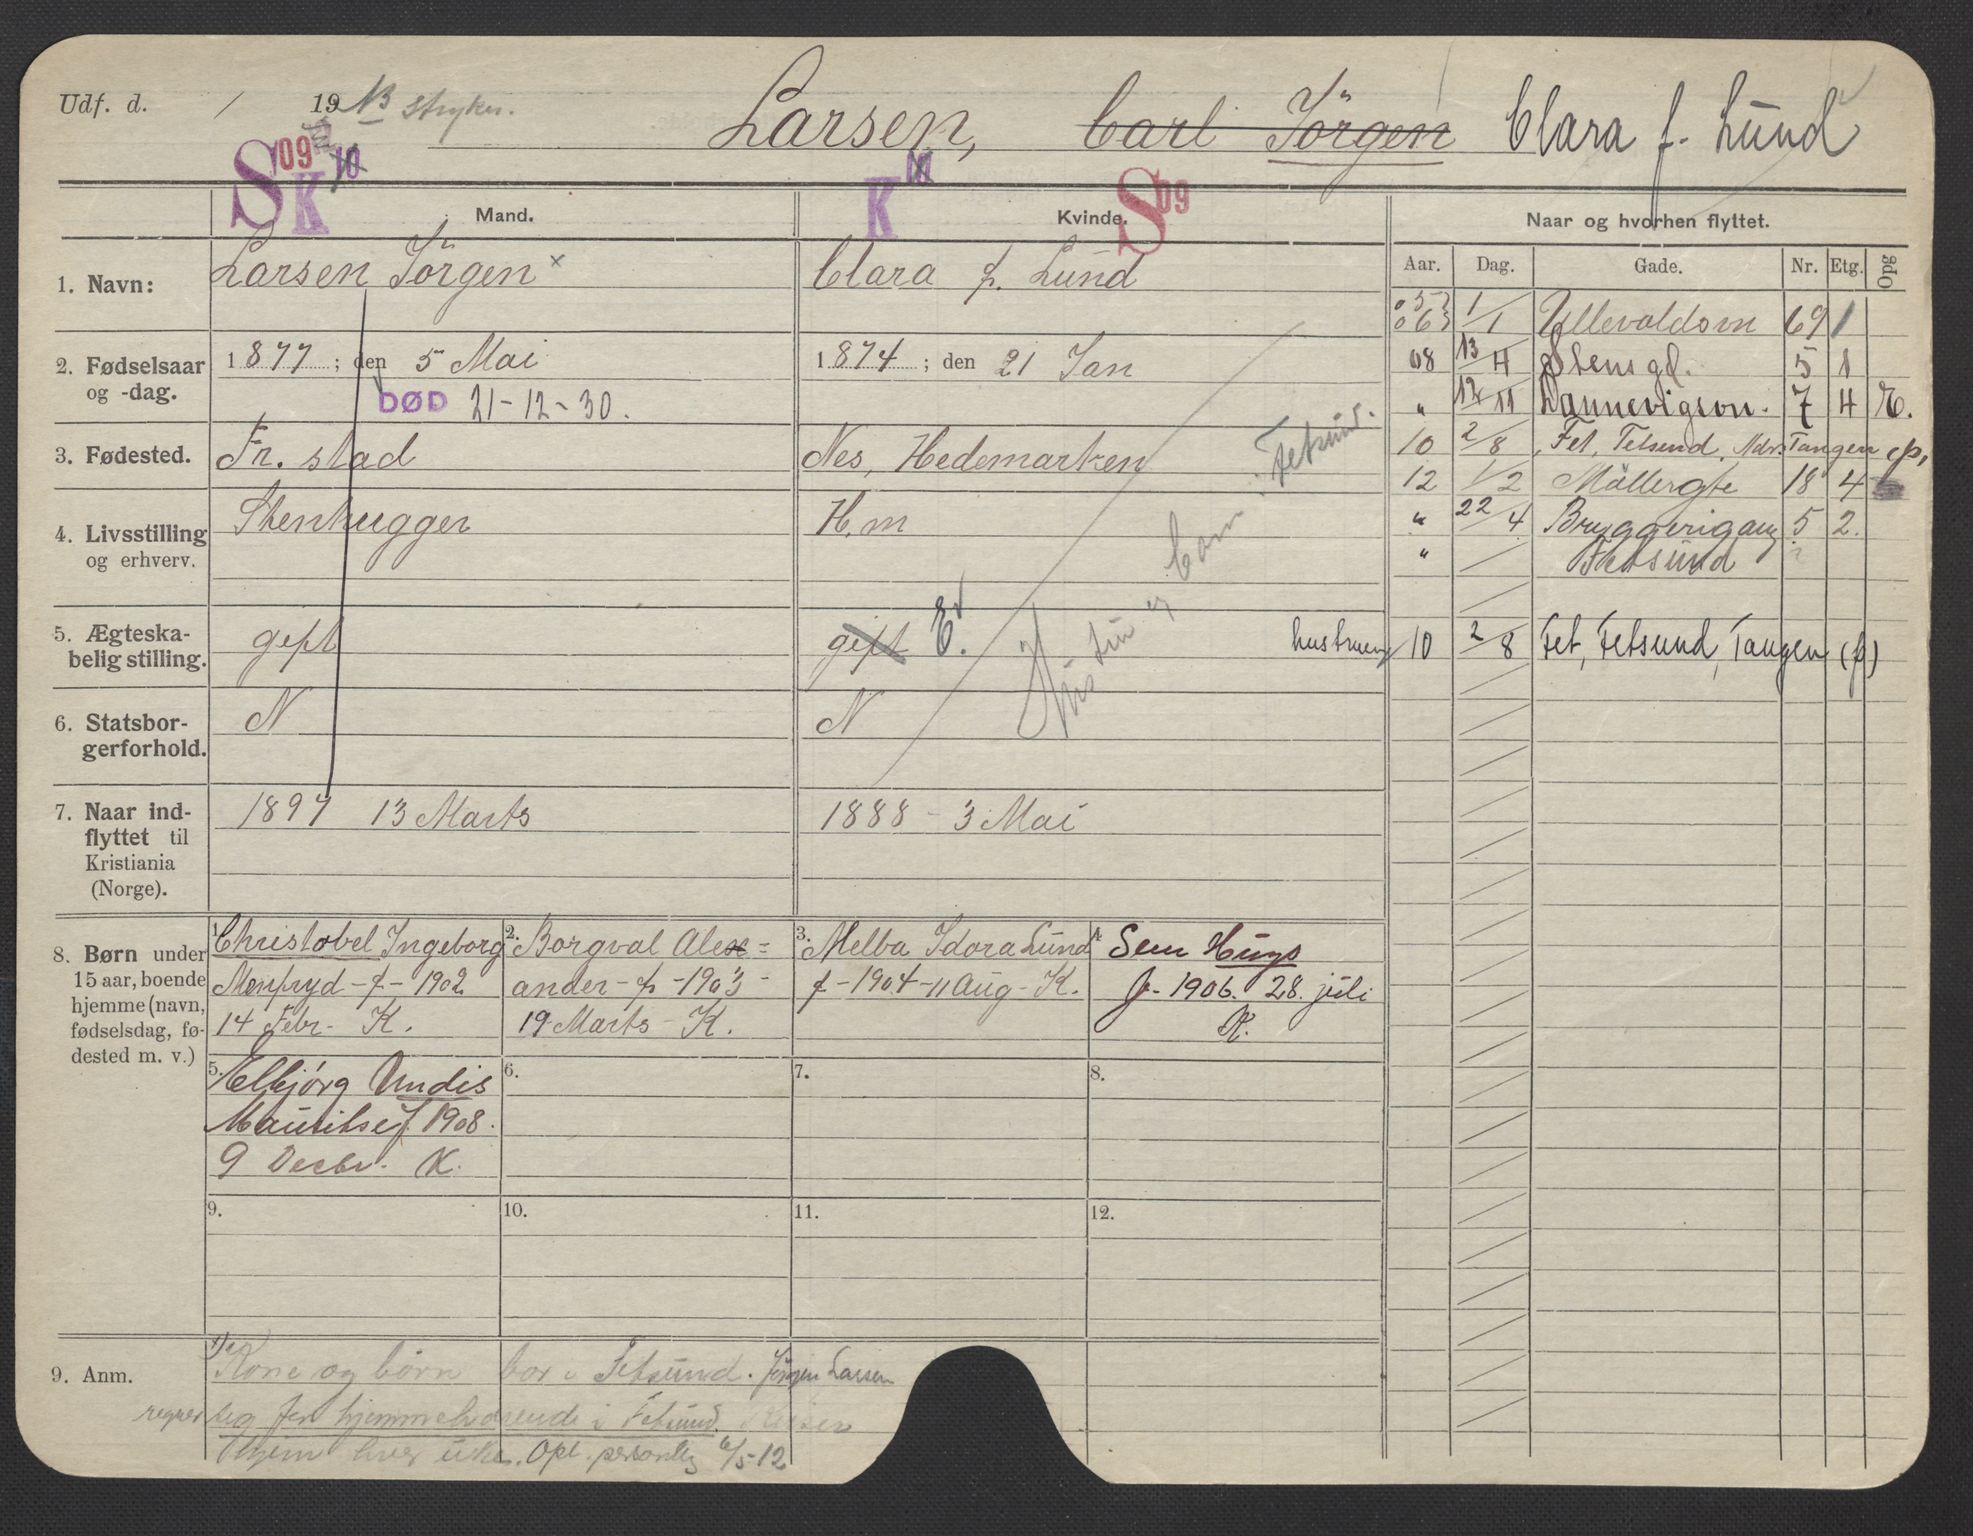 Udf. d. / 19 NB stryker.
Larsen, Carl Jörgen Clara f. Lund
S 09 K 10
K 10 S 09
Mand.
Kvinde.
Naar og hvorhen flyttet.
Aar. Dag. Gade. Nr. Etg. Opg
1. Navn:
Larsen Jörgen x
Clara f. Lund
2. Fødselsaar og -dag.
1877; den 5 Mai
DØD 21-12-30.
1874; den 21 Jan
3. Fødested.
Fr. stad
Nes, Hedemarken
4. Livsstilling og erhverv.
Stenhugger
H.m
5. Ægteska-
belig stilling.
gift
gift E.
6. Statsbor-
gerforhold.
N
N
Hustru og barn i Fetsund.
7. Naar ind-
flyttet til
Kristiania
(Norge).
1897 13 Marts
1888 - 3 Mai
05 06 1/1 Ullevoldsvn 69 1
08 13/4 Stensgd. 5 1
" 12/11 Dannevigsvn. 7 4 E.
10 2/8 Fet, Fetsund, Ndr. Tangen (f)
12 1/2 Möllergt 18 4
" 22/4 Bryggerigang 5 2.
" / Fetsund
hustruen 10 2/8 Fet, Fetsund, Tangen (f)
8. Børn under
15 aar, boende
hjemme (navn,
fødselsdag, fø-
dested m. v.)
1. Christobel Ingeborg
- f - 1902
14 Febr - K.
2. Borgval Alex=
ander - f - 1903 -
19 Marts - K.
3. Melba Idora Lund
f - 1904 - 11 Aug - K.
4. Sem Hugo
f. 1906. 28. juli
K.
5. Elbjørg Undis
f. 1908.
9 Decbr. K.
6.
7.
8.
9.
10.
11.
12.
9. Anm.
Kone og börn bor i Fetsund. Jörgen Larsen
regner sig for hjemmehörende i Fetsund. Reiser
hjem hver uke. Opl. personlig 6/5-12